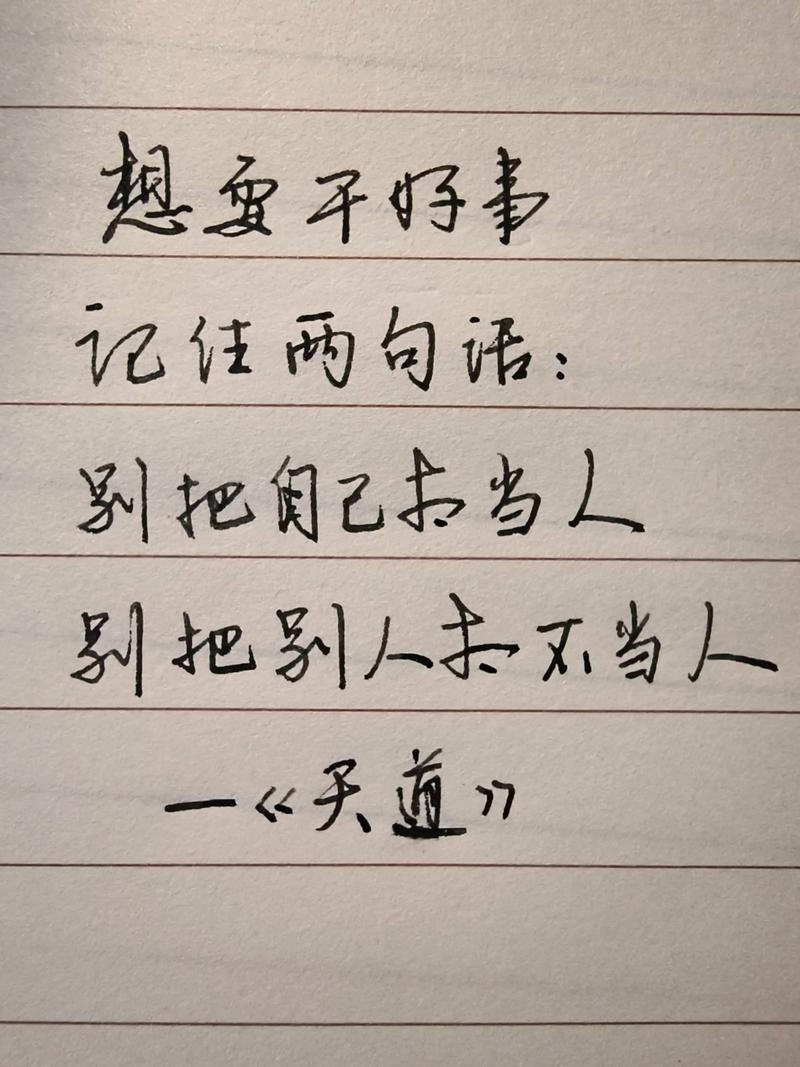 想要干好事
记住两句话：
别把自己太当人
别把别人太不当人
—《天道》